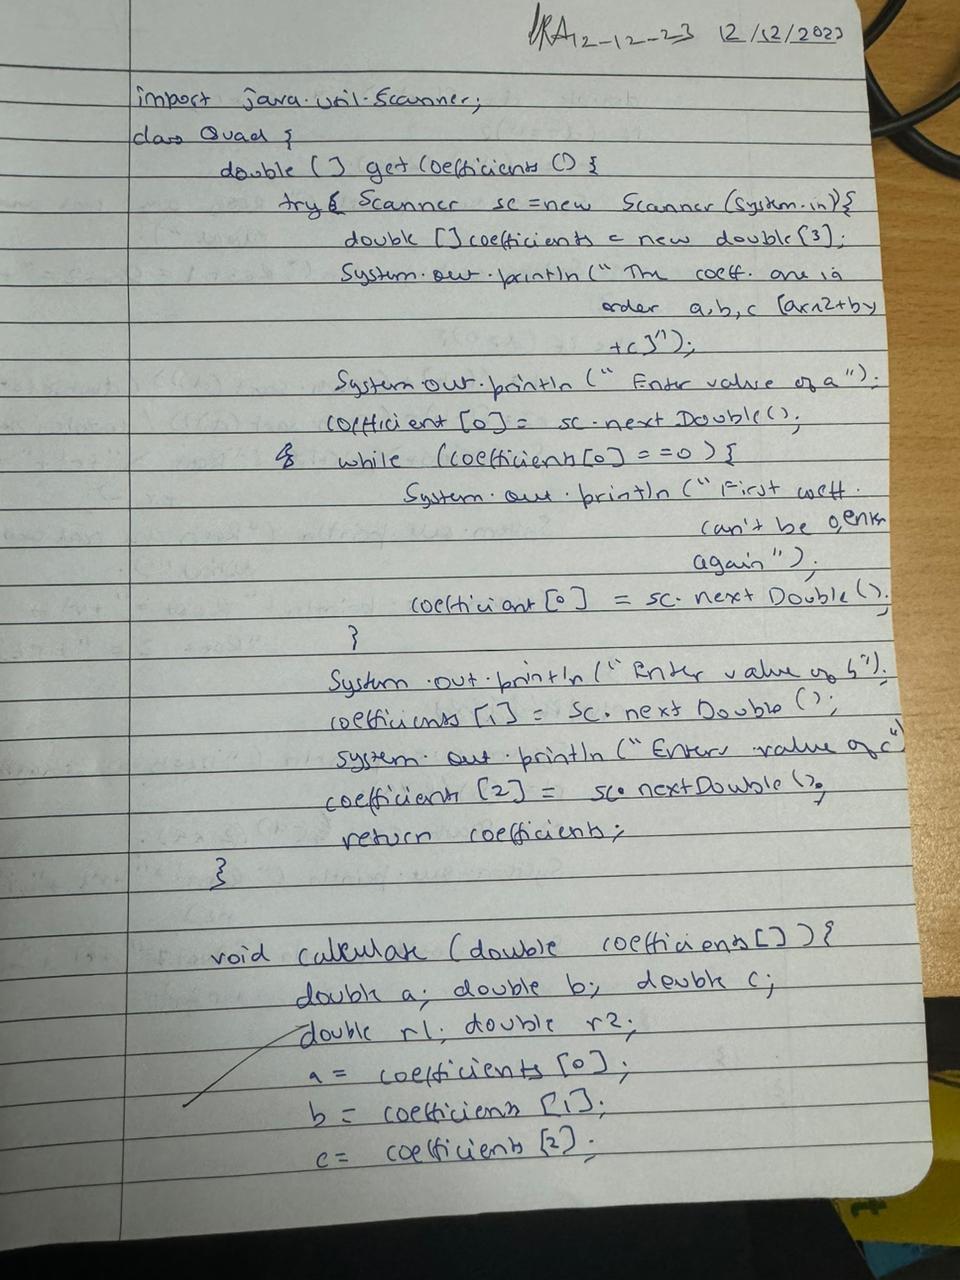 12-12-23 12/12/2023
import java.util.Scanner;
class Quad {
double [] getCoefficients () {
try( Scanner sc = new Scanner (System.in)){
double [] coefficients = new double[3];
System.out.println (" The coeff. are in
order a,b,c [ax^2+bx
+c]");
System.out.println (" Enter value of a");
coefficient [0] = sc.nextDouble();
while (coefficients[0] == 0) {
System.out.println (" First coeff.
can't be 0, enter
again");
coefficient [0] = sc.nextDouble();
}
System.out.println (" Enter value of b");
coefficients [1] = sc.nextDouble ();
System.out.println (" Enter value of c")
coefficients [2] = sc.nextDouble ();
return coefficients;
}
void calculate (double coefficients[]) {
double a; double b; double c;
double r1; double r2;
a = coefficients [0];
b = coefficients [1];
c = coefficients [2];